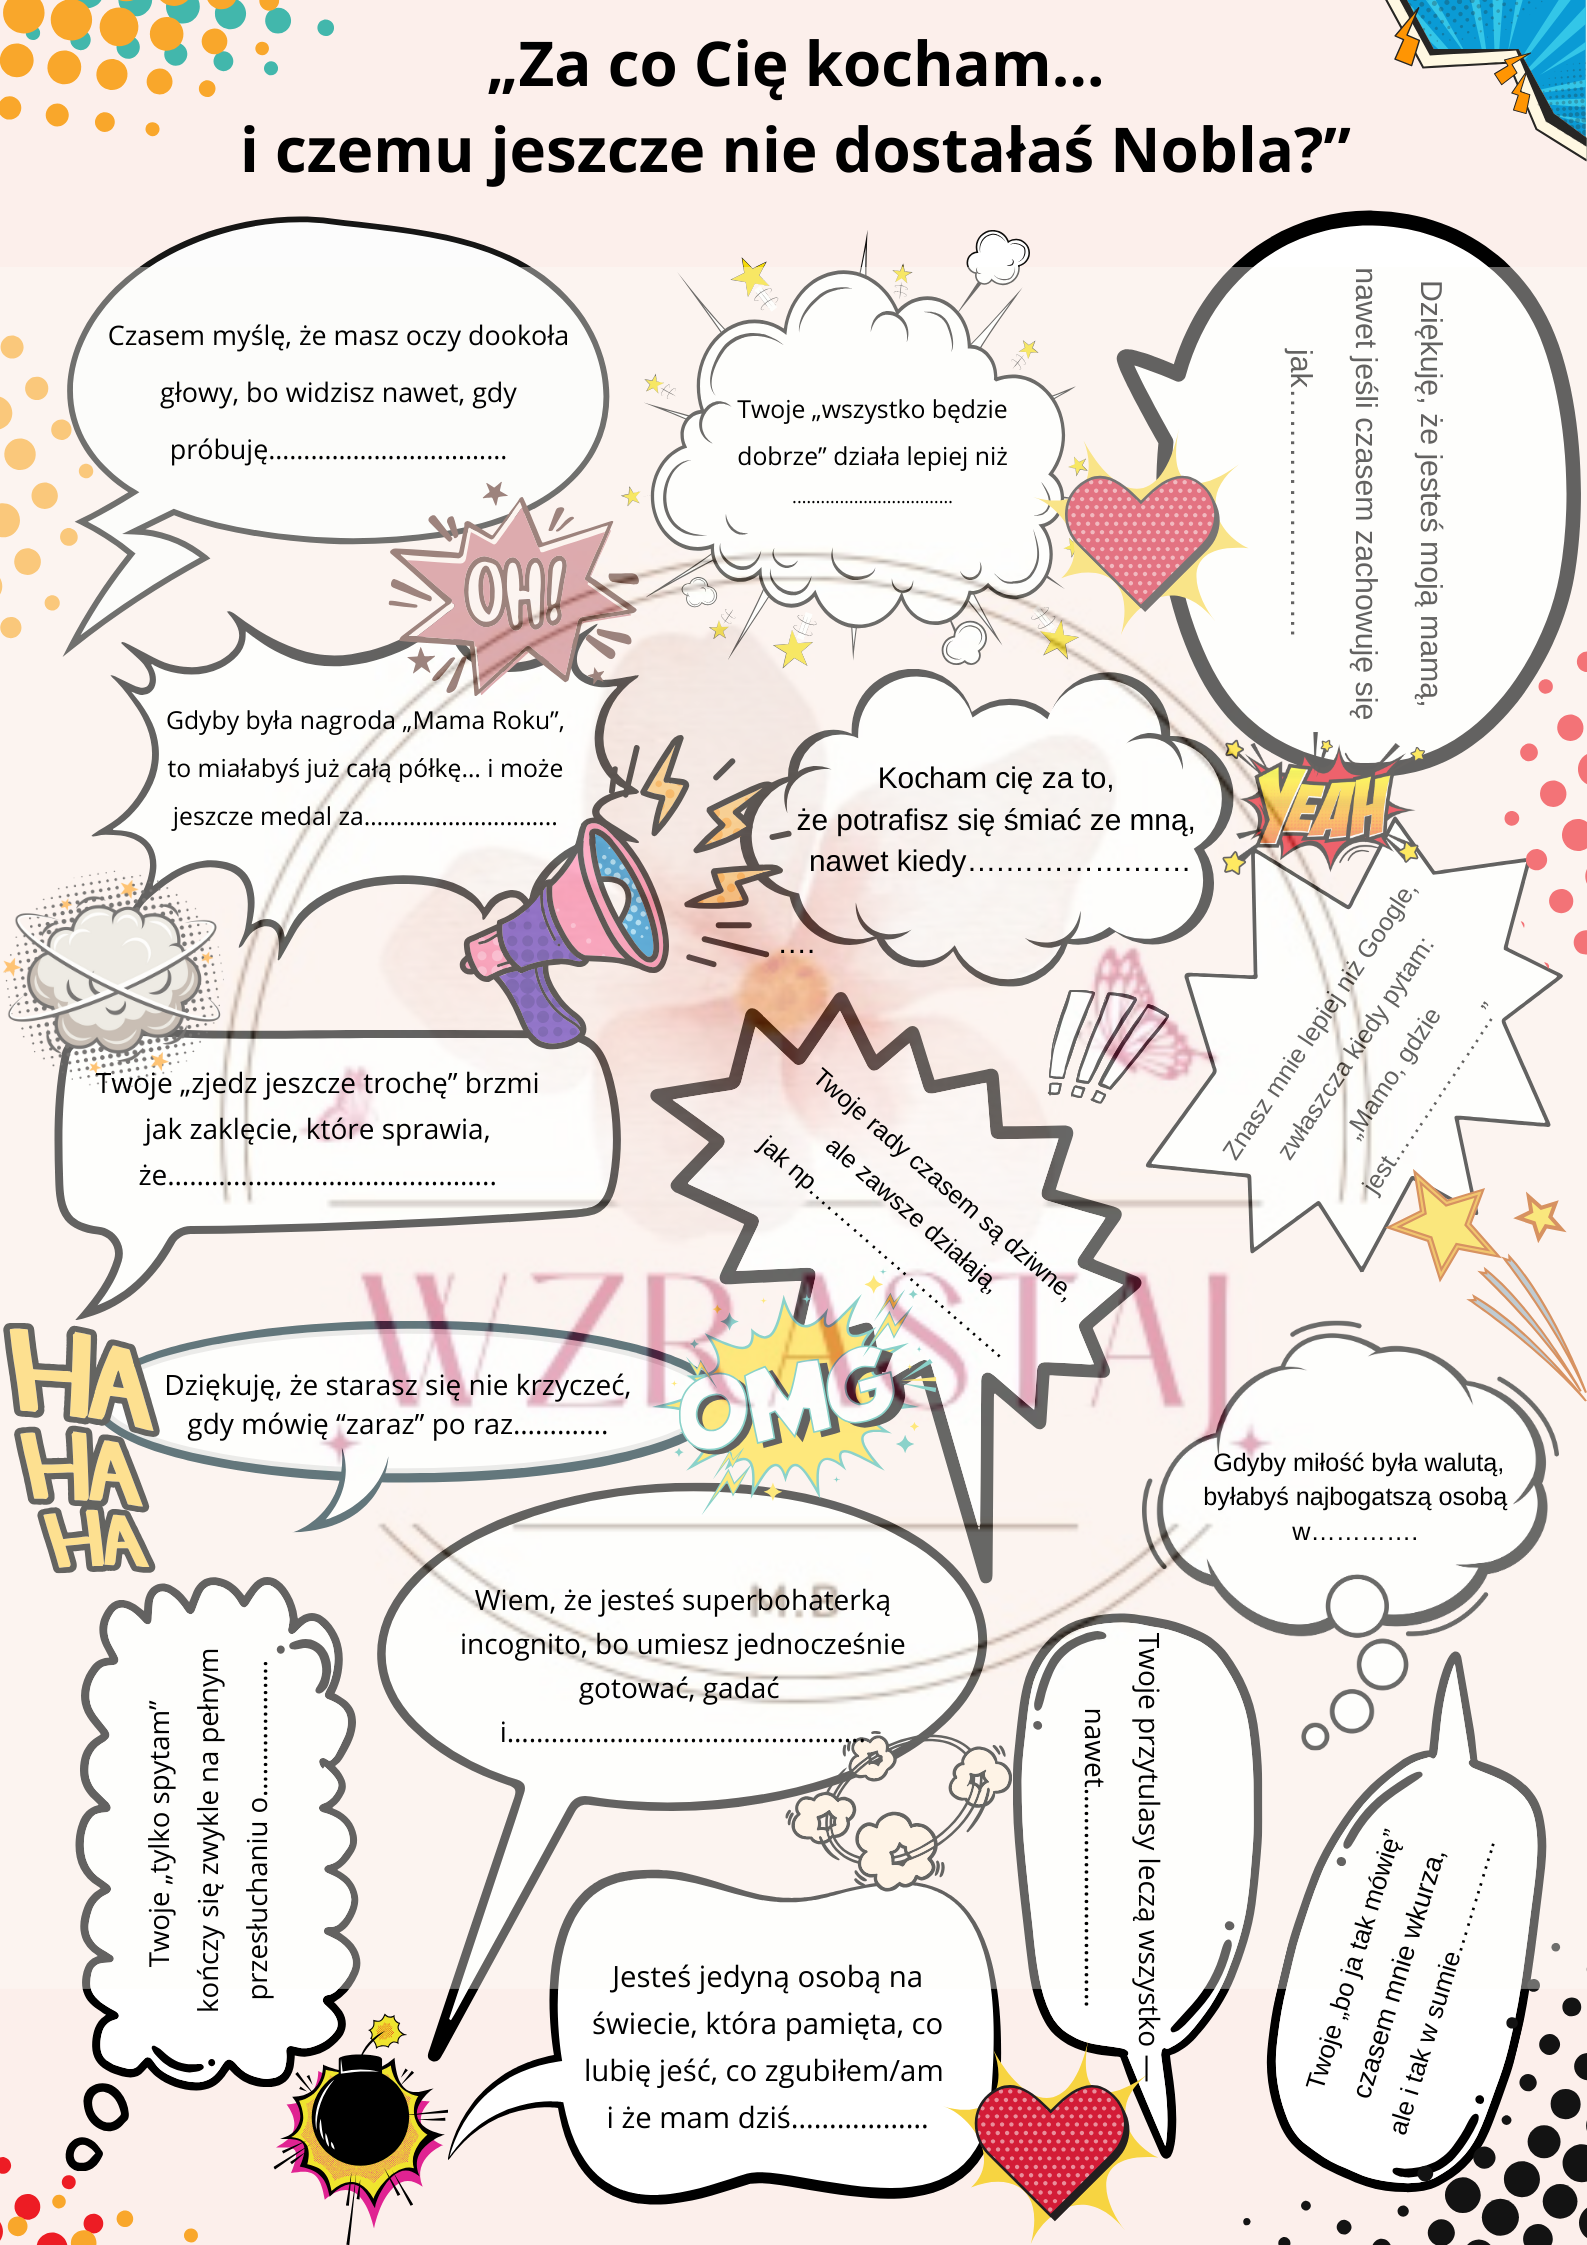 „Za co Cię kocham...
i czemu jeszcze nie dostałaś Nobla?”
Czasem myślę, że masz oczy dookoła
głowy, bo widzisz nawet, gdy
próbuję..................................
Twoje „wszystko będzie
dobrze” działa lepiej niż
..................................
Dziękuję, że jesteś moją mamą,
nawet jeśli czasem zachowuję się
jak..............................
OH!
Gdyby była nagroda „Mama Roku”,
to miałabyś już całą półkę… i może
jeszcze medal za..............................
Kocham cię za to,
że potrafisz się śmiać ze mną,
nawet kiedy……………………
….
YEAH
Znasz mnie lepiej niż Google,
zwłaszcza kiedy pytam:
„Mamo, gdzie
jest……………………”
Twoje „zjedz jeszcze trochę” brzmi
jak zaklęcie, które sprawia,
że.............................................
!!!
Twoje rady czasem są dziwne,
ale zawsze działają,
jak np..............................
WZRASTAJ
M.B
HA
HA
HA
Dziękuję, że starasz się nie krzyczeć,
gdy mówię “zaraz” po raz.............
OMG
Gdyby miłość była walutą,
byłabyś najbogatszą osobą
w………….
Wiem, że jesteś superbohaterką
incognito, bo umiesz jednocześnie
gotować, gadać
i.................................................
Twoje „tylko spytam”
kończy się zwykle na pełnym
przesłuchaniu o....................
Twoje przytulasy leczą wszystko —
nawet..............................
Twoje „bo ja tak mówię”
czasem mnie wkurza,
ale i tak w sumie……………
Jesteś jedyną osobą na
świecie, która pamięta, co
lubię jeść, co zgubiłem/am
i że mam dziś..................